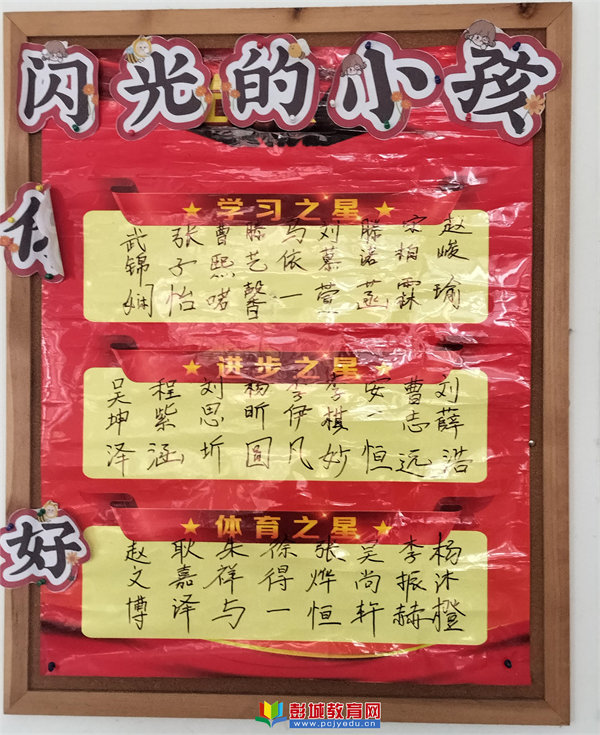 闪光的小孩
学习之星
武锦娴 张子怡 曹熙喏 滕艺馨 马依一 刘慕萱 滕诺菡 宋桐霖 赵峻瑜
进步之星
吴坤泽 程紫涵 刘思圻 杨昕圆 李伊凡 李棋妙 安一恒 曹志远 刘薛浩
好
体育之星
赵文博 耿嘉泽 朱祥与 徐得一 张烨恒 吴尚轩 李振赫 杨沐橙
彭城教育网
www.pcjyedu.cn